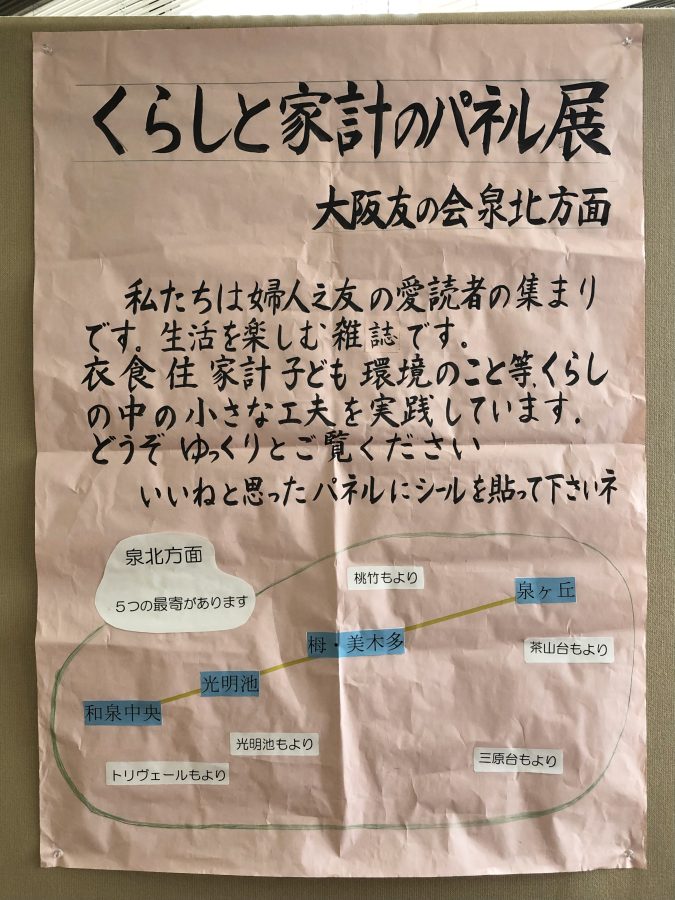 くらしと家計のパネル展
大阪友の会泉北方面
私たちは婦人之友の愛読者の集まり
です。生活を楽しむ雑誌です。
衣食住 家計 子ども 環境のこと等、くらし
の中の小さな工夫を実践しています。
どうぞ ゆっくりとご覧ください
いいねと思ったパネルにシールを貼って下さいネ
泉北方面
5つの最寄があります
桃竹もより
泉ヶ丘
栂・美木多
茶山台もより
光明池
和泉中央
光明池もより
三原台もより
トリヴェールもより